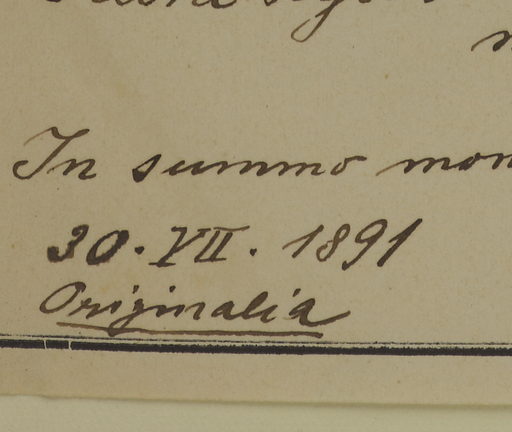 In summo
30. VII. 1891
Originalia